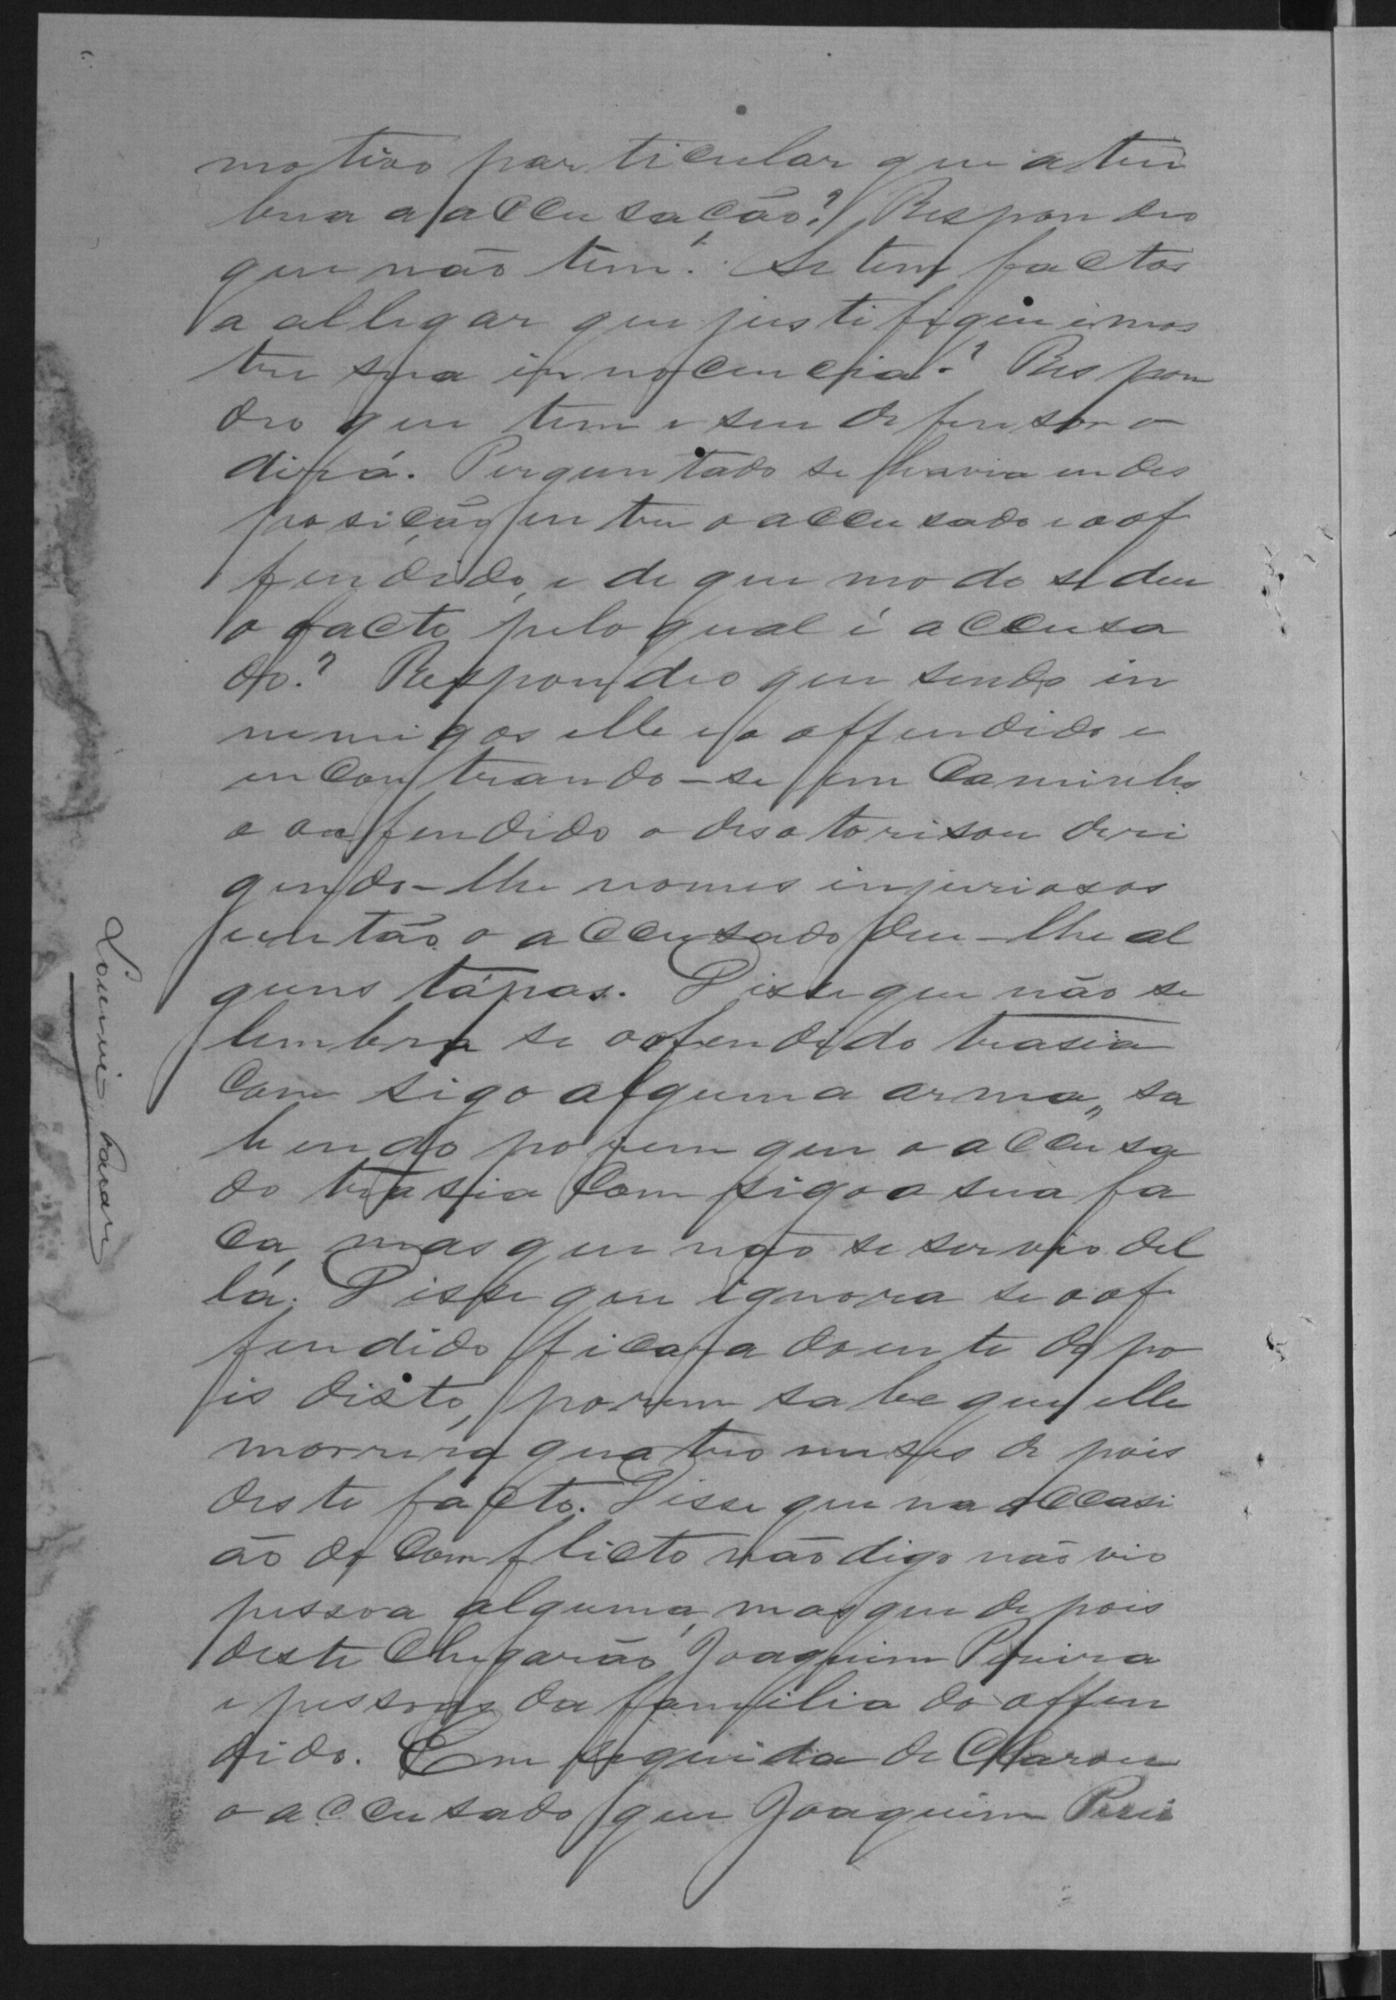 motivo particular que atri
bua a accusação? Respondeo
que não tem. Se tem factos
a allegar que justifique e mos
tre sua innocencia? Respon
deo que tem e seu defensor o
dirá. Perguntado se havia endes
posição entre o accusado e o of
fendido, e de que modo se deu
o facto pelo qual é accusa
do? Respondeo que sendo in
nemigos elle e o offendido e
encontrando-se em caminho
o offendido o desatorisou deri
gendo-lhe nomes injuriosos
então o accusado deu-lhe al
guns tápas. Disse que não se
lembra se o ofendido trasia
com sigo alguma arma, sa
bendo porem que o accusa
do trasia com sigo a sua fa
ca, mas que não se servio del
lá. Disse que ignora se o of
fendido ficara doente depo
is disto, porem sabe que elle
morrera quatro meses depois
deste facto. Disse que na occasi
ão do comflicto não digo não vio
pessoa alguma, mas que depois
deste chegarão Joaquim Pereira
e pessoas da familia do offen
dido. Em seguida declarou
o accusado que Joaquim Perei